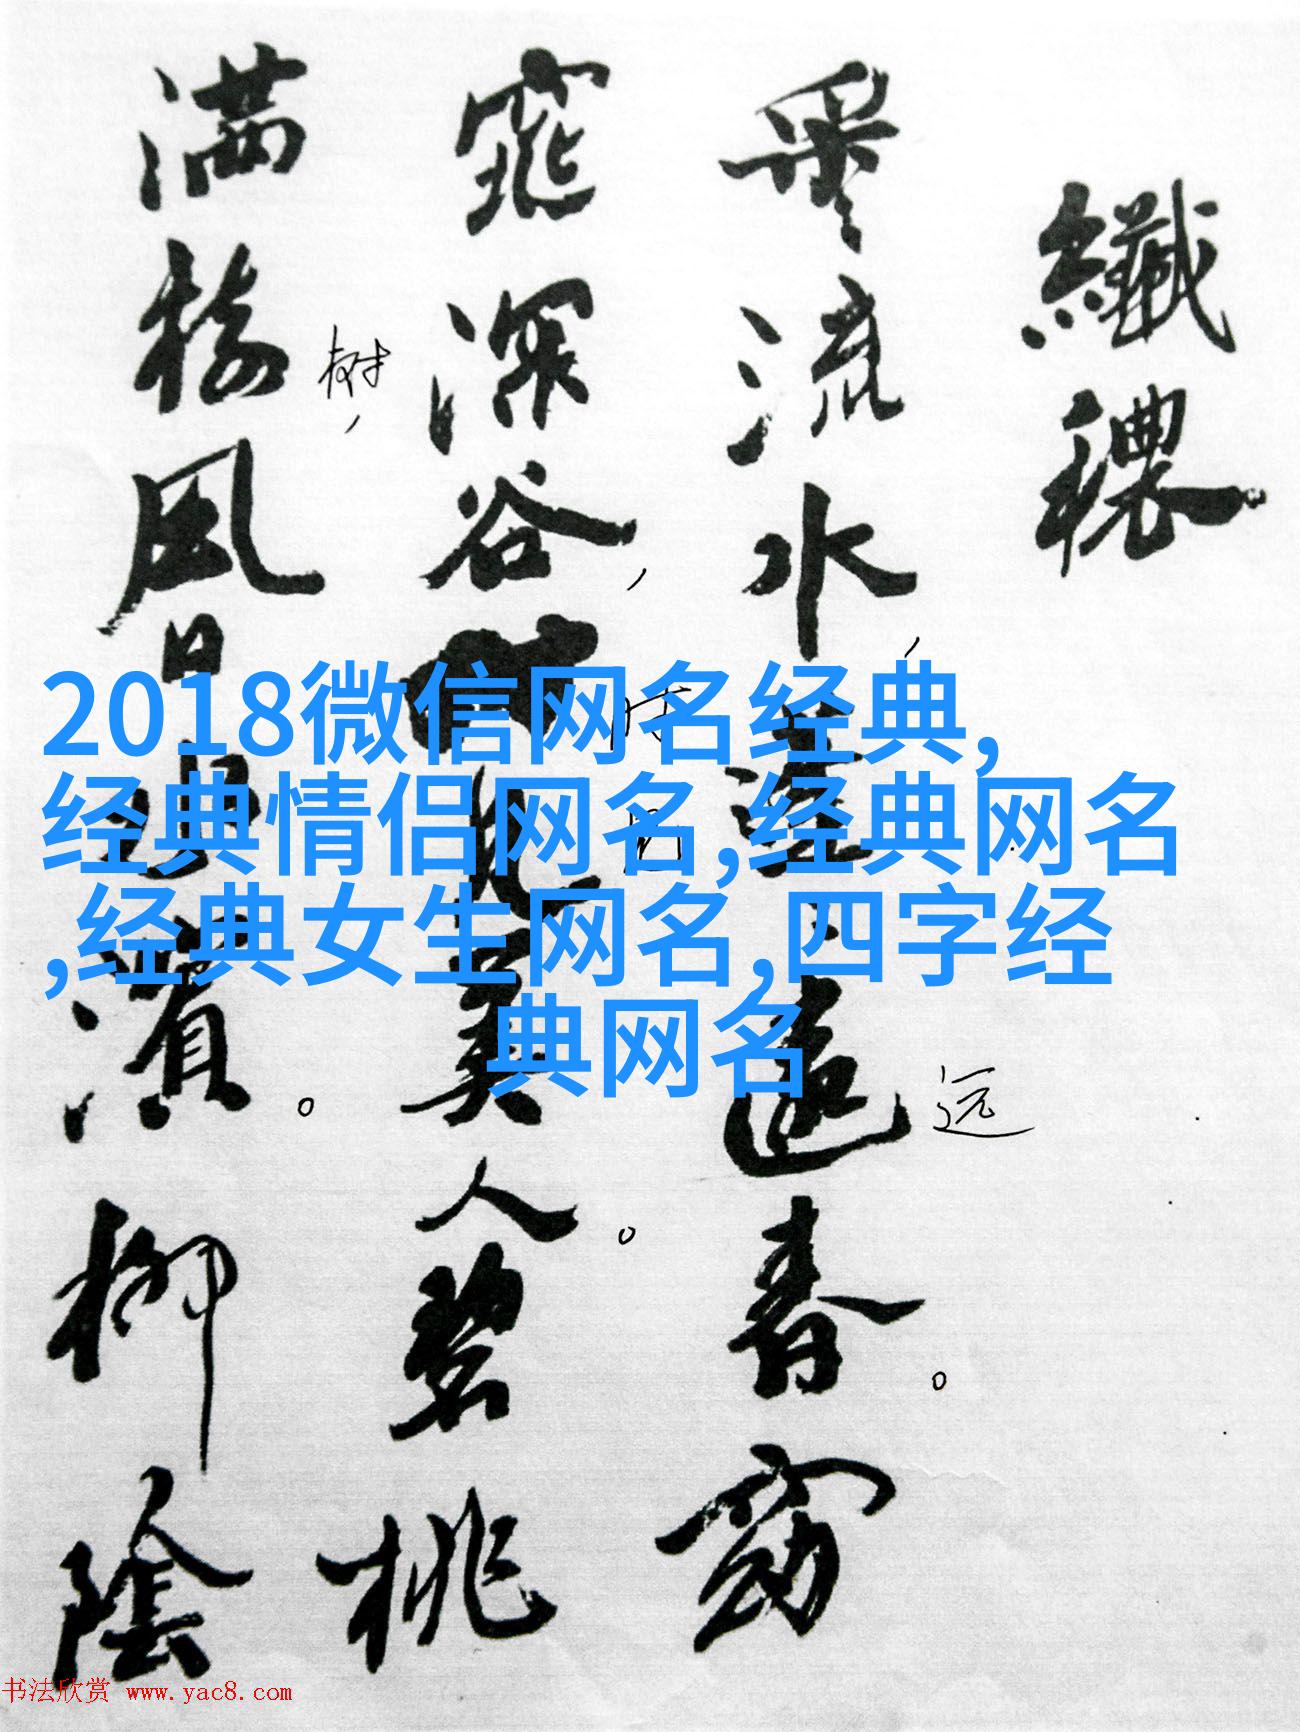 纖穠
采〻流水，蓬〻遠春。窈
远
窕深谷，見美人。碧桃
时
满樹，風日水濱。柳陰
树
2018微信网名经典,
经典情侣网名,经典网名
,经典女生网名,四字经
典网名
书法欣赏 www.yac8.com